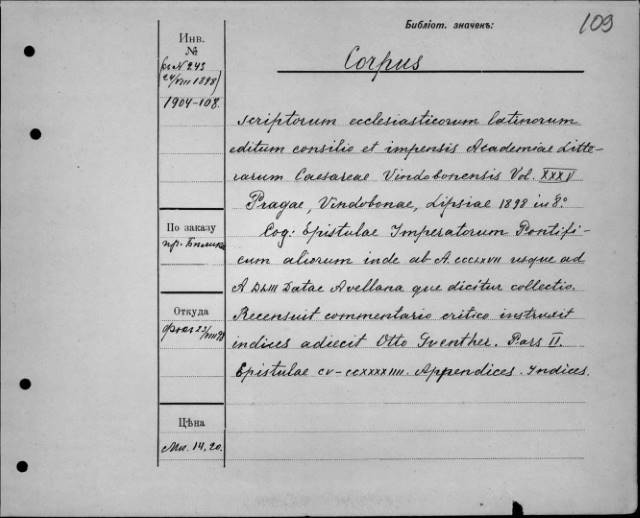 Библіот. значекъ:
109
Corpus
Инв.
№
24/VIII 1898)
1904-108.
scriptorum ecclesiasticorum latinorum
editum consilio et impensis Academiae Litte-
rarum Caesareae Vindobonensis Vol. XXXV
Pragae, Vindobonae, Lipsiae 1898 in 8.°
Cog: Epistulae Imperatorum Pontifi-
cum aliorum inde ab A. CCCLXVII usque ad
A DLIII Datae Avellana que dicitur collectio.
Recensuit commentario critico instruxit
indices adiecit Otto Guenther. Pars II.
Epistulae CV-CCXXXXIIII. Appendices. Indices.
По заказу
пр.
Откуда
Цѣна
Мк. 14,20.